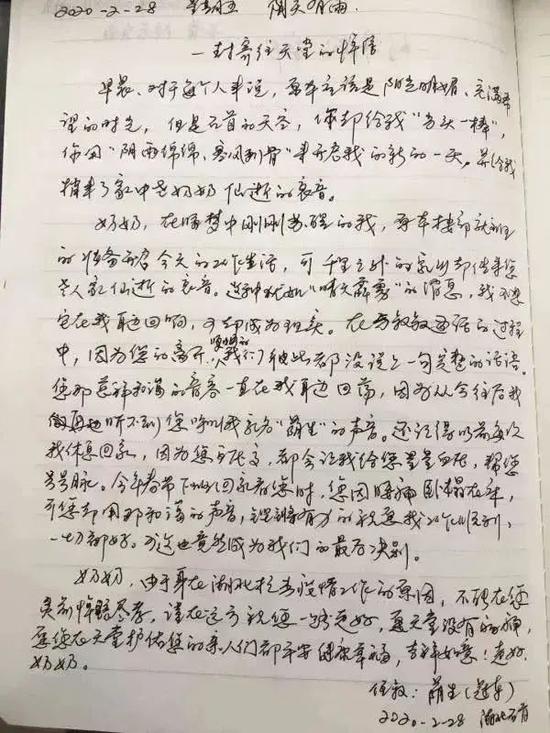 2020-2-28 星期五 阴天有雨
一封寄往天堂的悼信
早晨、对于每个人来说,原本应该是阳光明媚、充满希
望的时光,但是石首的天空,你却给我"当头一棒",
你用"阴雨绵绵、寒风刺骨"来开启我的新的一天。并给我
捎来了家中老奶奶仙逝的哀音。
奶奶,在睡梦中刚刚苏醒的我,原本
的准备开启今天的工作生活,可千里之外的家乡却传来您
老人家仙逝的哀音。这种犹如"晴天霹雳"的消息,我不想
它在我耳边回响,可却成为现实。在与敬敬通话的过程
中,因为您的离开,我们彼此都没说上一句完整的话语。
您那慈祥和蔼的音容一直在我耳边回荡,因为从今往后我
再也听不到您呼叫我乳名"萌生"的声音。还记得以前每次
我休息回家,因为您血压高,都会让我给您量量血压,帮您
号号脉。今年春节下班回家看您时,您因腰痛卧榻在床,
可您却用那和蔼的声音,铿锵有力的祝愿我工作顺利、
一切都好。可这也竟然成为我们的最后决别。
奶奶,由于身在湖北抗击疫情工作的原因,不能在您
灵前悼唁尽孝,请在这方祝您一路走好,愿天堂没有病痛,
愿您在天堂护佑您的亲人们都平安健康幸福,吉祥如意!走好
奶奶。
任敬:萌生
2020-2-28 湖北石首